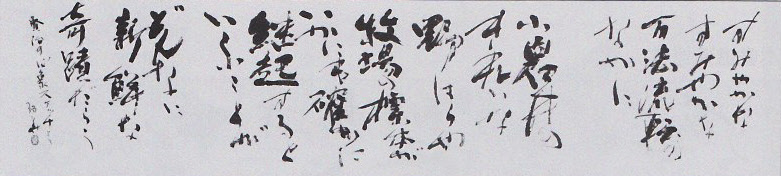 すみやかな
すみやかな
万法流転の
なかに
小岩井の
きれいな
野はらや
牧場の標本が
いかにも確かに
継起すると
いふことが
どんなに
新鮮な
奇蹟だらう